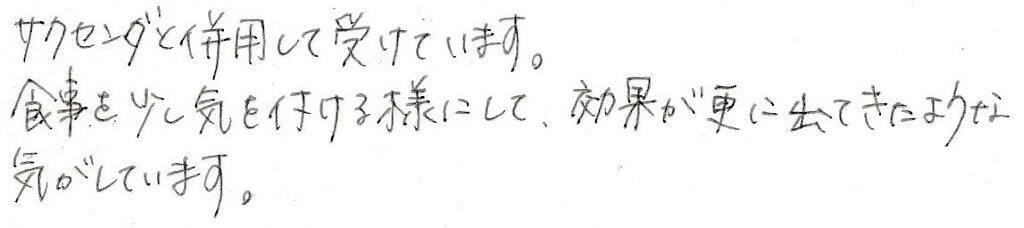 サクセンダと併用して受けています。
食事を少し気を付ける様にして、効果が更に出てきたような
気がしています。